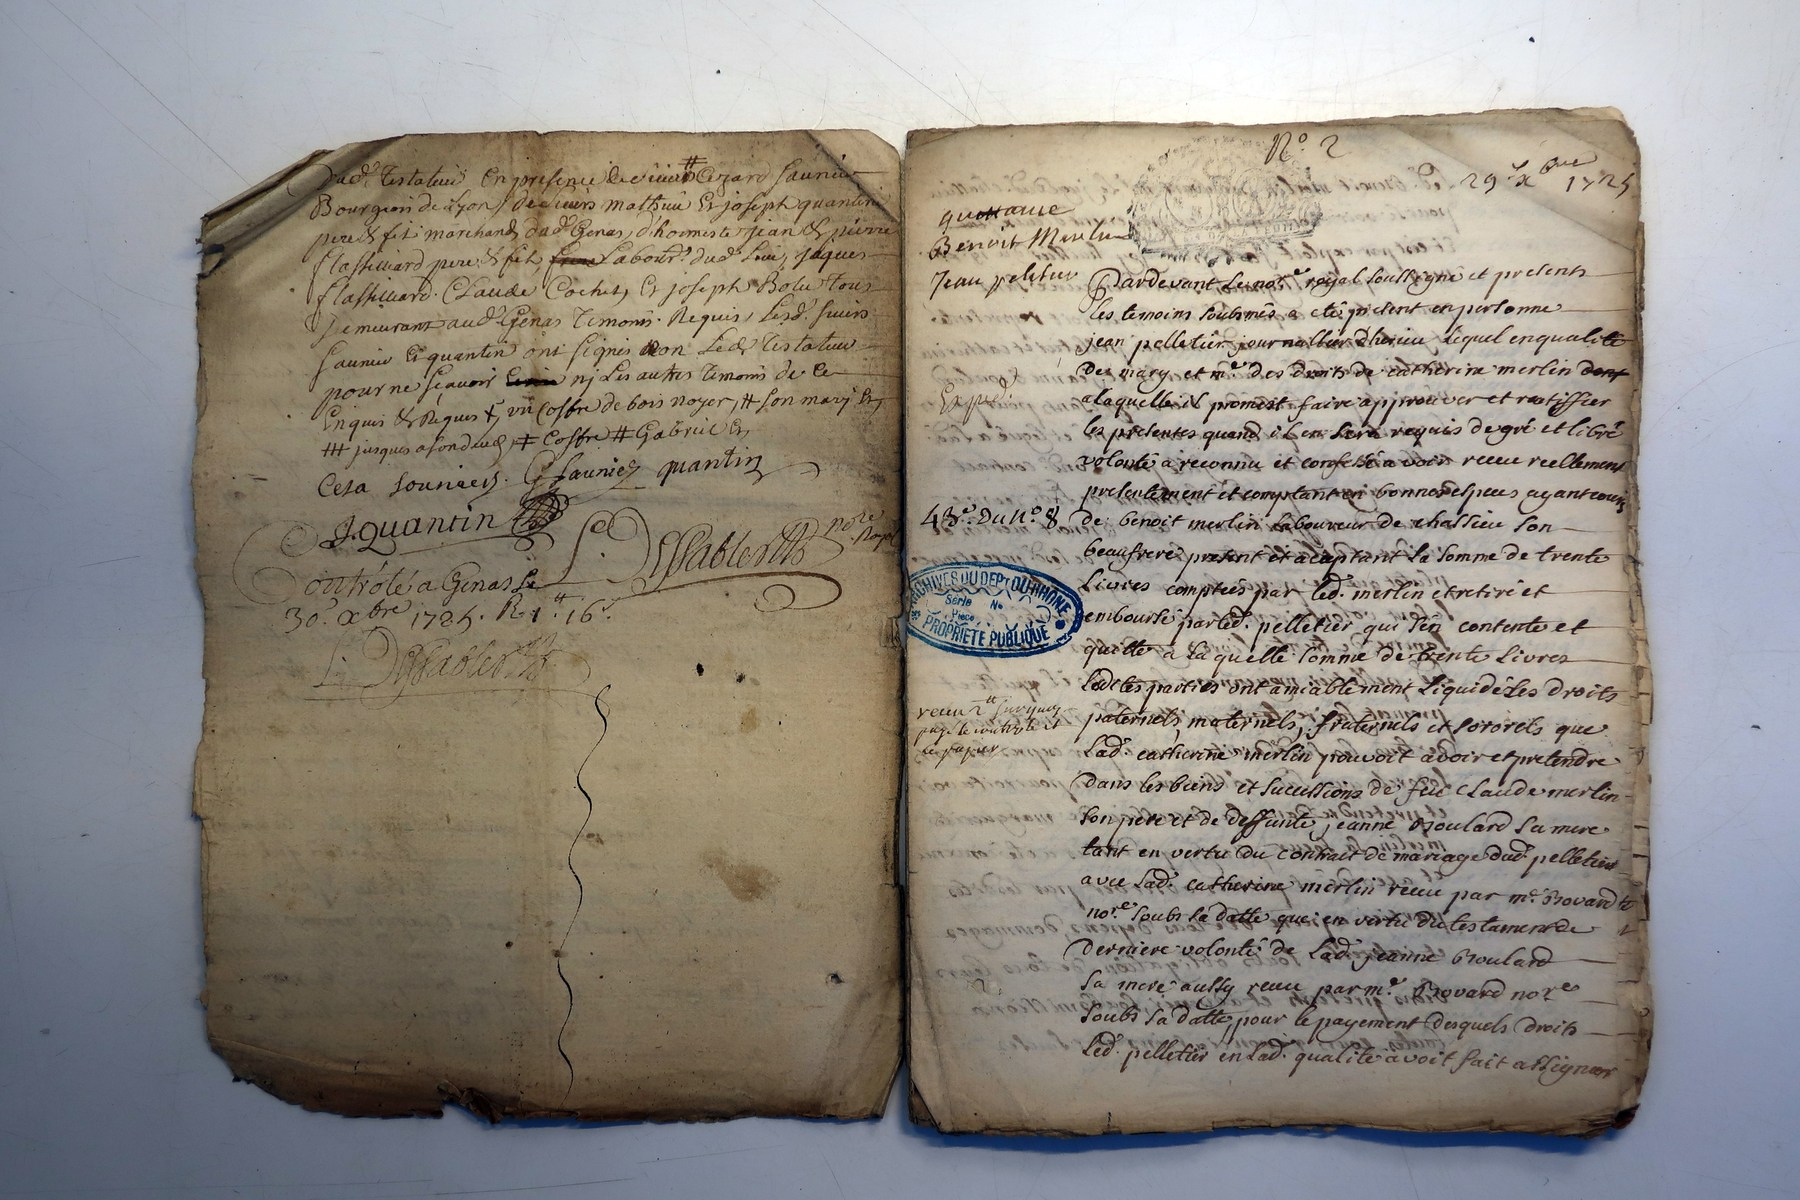 dud. Testateur En presence de sieur # Cezard Saunier
Bourgeois de Lyon, de sieurs mathieu & joseph quantin
pere & fils marchands dud. Genas, d'honneste jean & pierre
flassiliard pere & fils, Labour. dud. Lieu, jaques
flassiliard. Claude Cochet, & joseph Bolu Tous
demeurant aud. Genas Temoins. Requis, Lesd. sieurs
Saunier & quantin ont signes non Led. Testateur
pour ne scavoir nj Les autres Temoins de ce
Enquis & Requis & vn Coffre de bois noyer, # son marj &
jusques a fond # Coffre # Gabriel &
Cesa G Saunier quantin
J. Quantin
nore Royal
Controlé a Genas Le
30e xbre 1725. R 1tt. 16s.
No. 2
29e xbre 1725
quittance
Benoit Merlin
Jean peletier
Pardevant Le nore royal soussigné et presents
les temoins soubsnés a eté present en personne
jean pelletier journallier d'heirieu lequel en qualité
de mary et me. des droits de catherine merlin
a laquelle il promest faire approuver et ratiffier
Exped.
les presentes quand il en sera requis de gré et libre
volonté a reconnu et confessé avoir receu reellement
presentement et comptant en bonnes especes ayant cours
48e. Du No. 8
de benoit merlin laboureur de chassieu son
beaufrere present et acceptant la somme de trente
Livres comptées par led. merlin et retiré et
ARCHIVES DU DEPT DU RHONE
Série No
Pièce
PROPRIETE PUBLIQUE
emboursé par led. pelletier qui s'en contente et
quitte a laquelle somme de trente Livres
lesdites parties ont amiablement liquidé les droits
receu 2tt
pour le controle et
le papier
paternels, maternels, fraternels et sororels que
Lad. catherine merlin pouvoit avoir et pretendre
dans les biens et successions de feu claude merlin
son pere et de deffunte jeanne Boulard sa mere
tant en vertu du contrait de mariage dud. pelletier
avec Lad. catherine merlin receu par me. Bovard
nore. soubs sa datte que en vertu du testament de
derniere volonté de Lad. jeanne Boulard
sa mere aussy receu par me. Bovard nore
soubs sa datte, pour le payement desquels droits
Led. pelletier en Lad. qualité avoit fait assigner